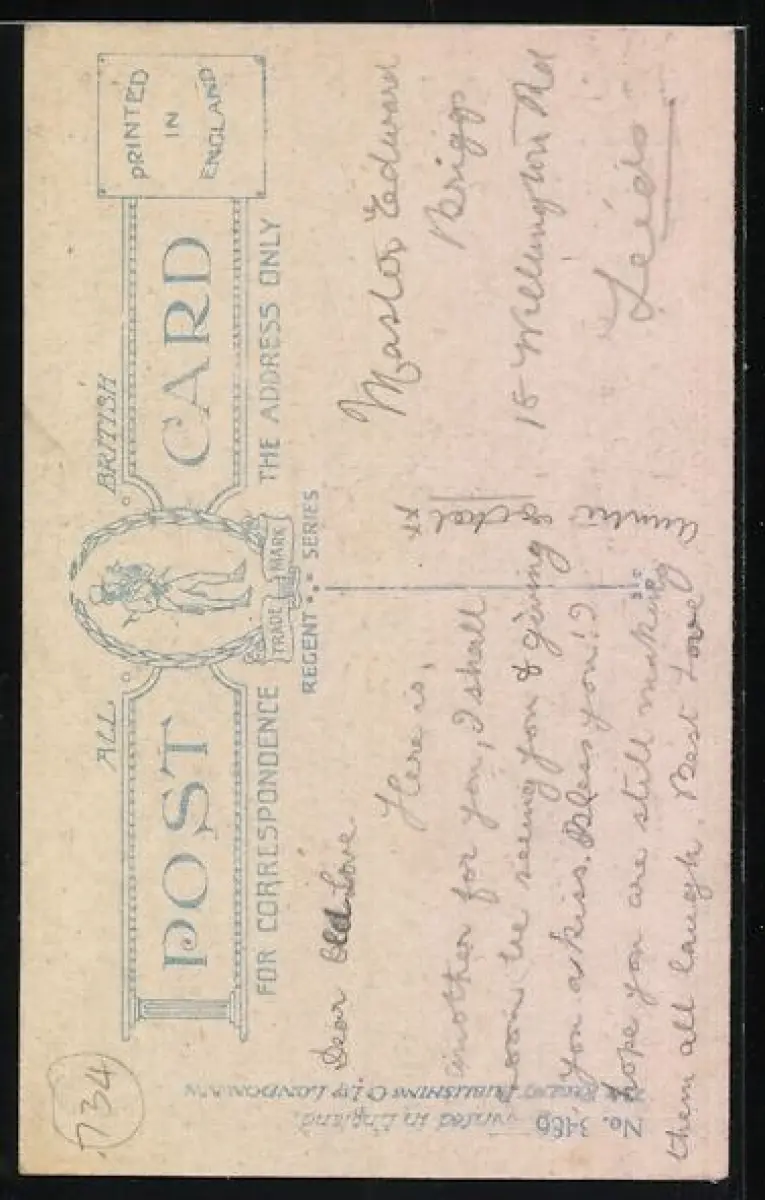 734
ALL BRITISH
POST CARD
PRINTED
IN
ENGLAND
TRADE MARK
FOR CORRESPONDENCE
THE ADDRESS ONLY
REGENT SERIES
Dear Old Love.
Here is,
another for you, I shall
soon be seeing you & giving
you a kiss. Bless you!
hope you are still making
them all laugh. Best Love
Auntie
xx
Master Edward
Briggs
18 Wellington Rd
Leeds
PUBLISHING Co LTD LONDON
No. 3486 Printed in England.